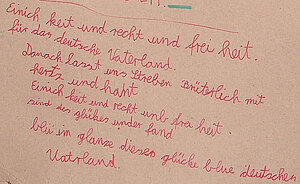 Einich keit und recht und frei heit.
für das deutsche Vaterland.
Danach lasst uns streben Brüterlich mit
hertz und hant
Einich keit und recht und frei heit
sind des glükes under fand
blü im glanze diesen glücke blue deutschen
Vatrland.